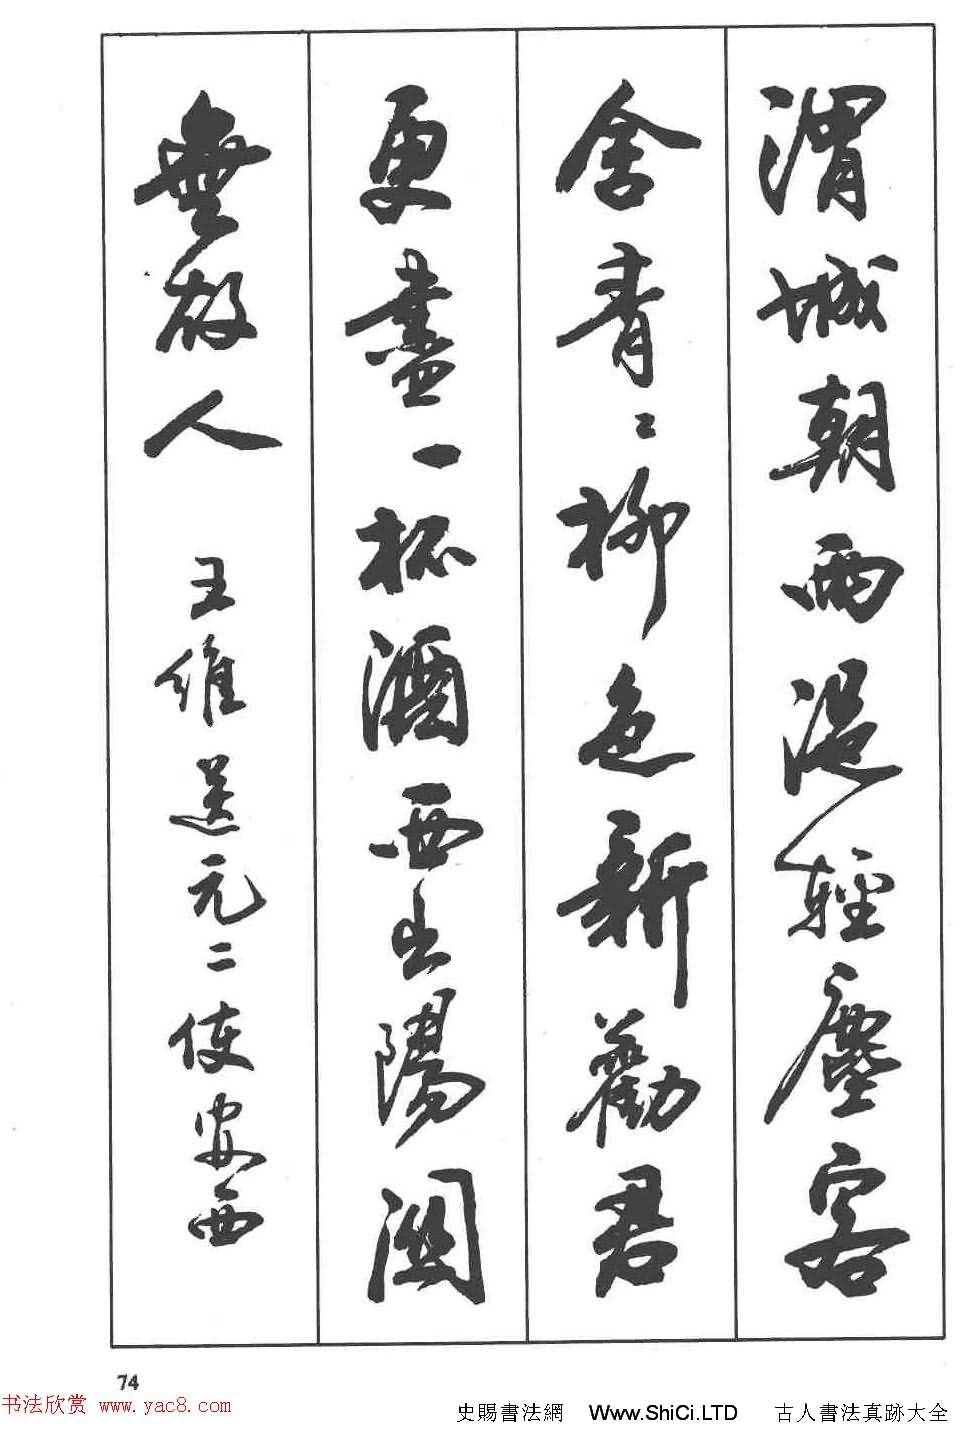 渭城朝雨浥輕塵客
舍青〻柳色新勸君
更盡一杯酒西出陽關
無故人 王維送元二使安西
74
书法欣赏 www.yac8.com
史賜書法網 Www.ShiCi.LTD 古人書法真跡大全